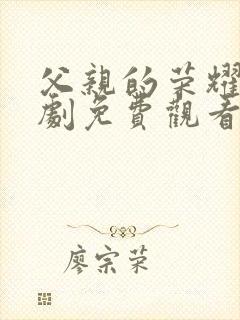 父親的荣耀
劇免費觀看
廖宗荣